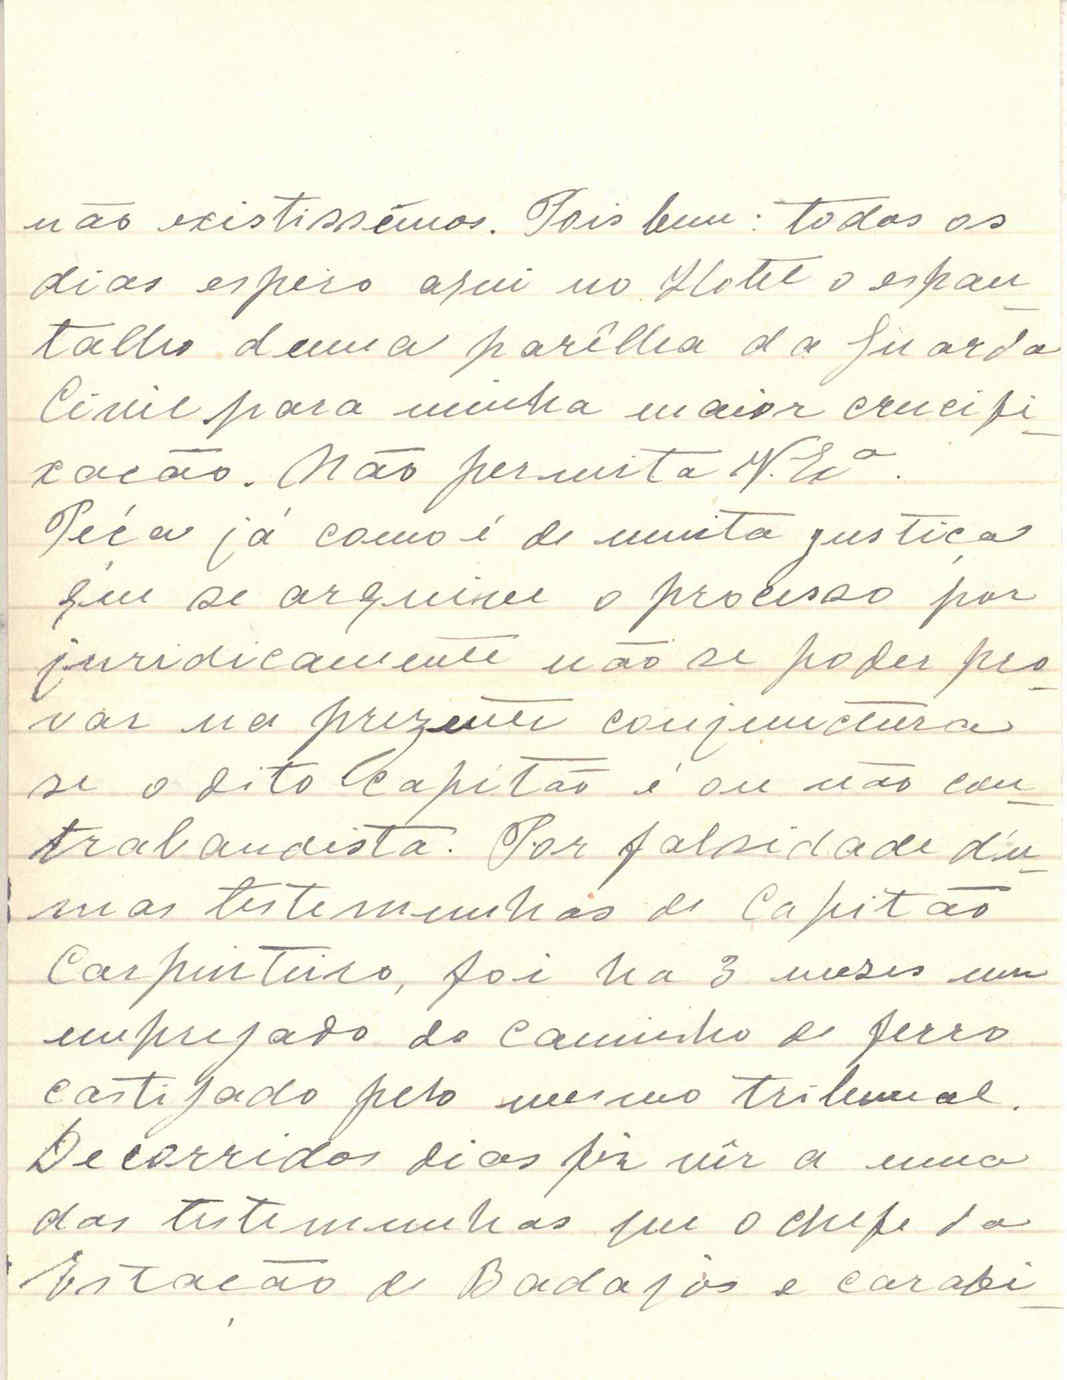 não existissêmos. Pois bem: todos os
dias espero aqui no Hotel o espan_
talho duma parêlha da Guarda
Civil para minha maior crucifi_
xacão. Não permita V. Exª.
Péça já como é de muita justiça
que se arquive o processo por
juridicamente não se poder pro_
var na prezente conjunctura
se o dito Capitão é ou não con_
trabandista. Por falsidade d'u_
mas testemunhas de Capitão
Carpinteiro, foi ha 3 mezes um
empregado do caminho de ferro
castigado pelo mesmo tribunal.
Decorridos dias fiz vêr a uma
das testemunhas que o chefe da
Estação de Badajós e carabi_